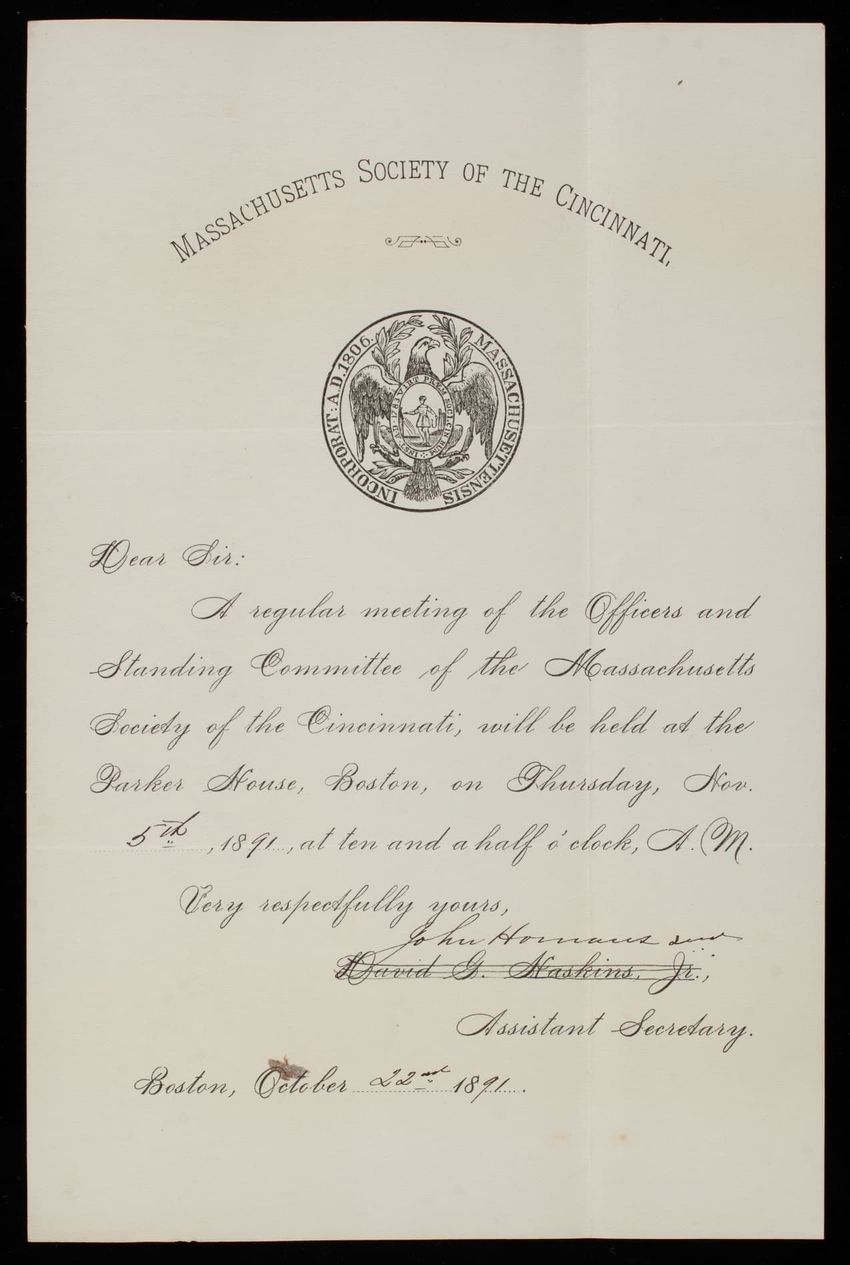 MASSACHUSETTS SOCIETY OF THE CINCINNATI.
INCORPORAT: A.D. 1806. MASSACHUSETTENSIS
Dear Sir:
A regular meeting of the Officers and
Standing Committee of the Massachusetts
Society of the Cincinnati, will be held at the
Parker House, Boston, on Thursday, Nov.
5th, 1891, at ten and a half o'clock, A. M.
Very respectfully yours,
John Homans 2nd
David G. Haskins, Jr.,
Assistant Secretary.
Boston, October 22nd 1891.